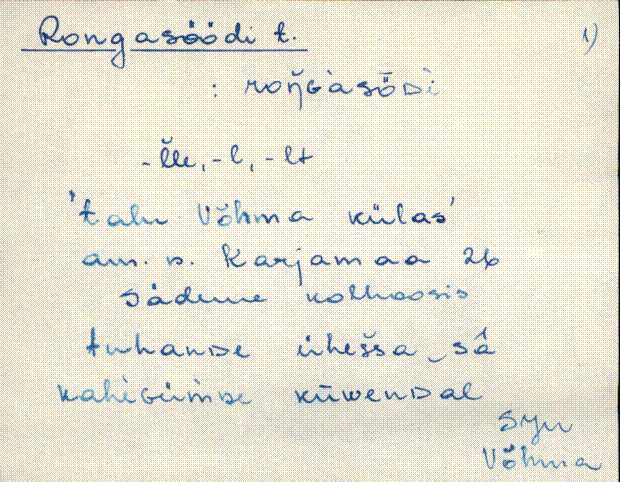 Rongasöödi t. 1)
: roŋ̆GàsöDì
- l̆le, - l, - lt
'talu Võhma külas'
am. n. Karjamaa 26
sädeme kolhoosis
tuhanDe ühešsa sâ
kahèGüm̀De küwenDal
Syn
Võhma